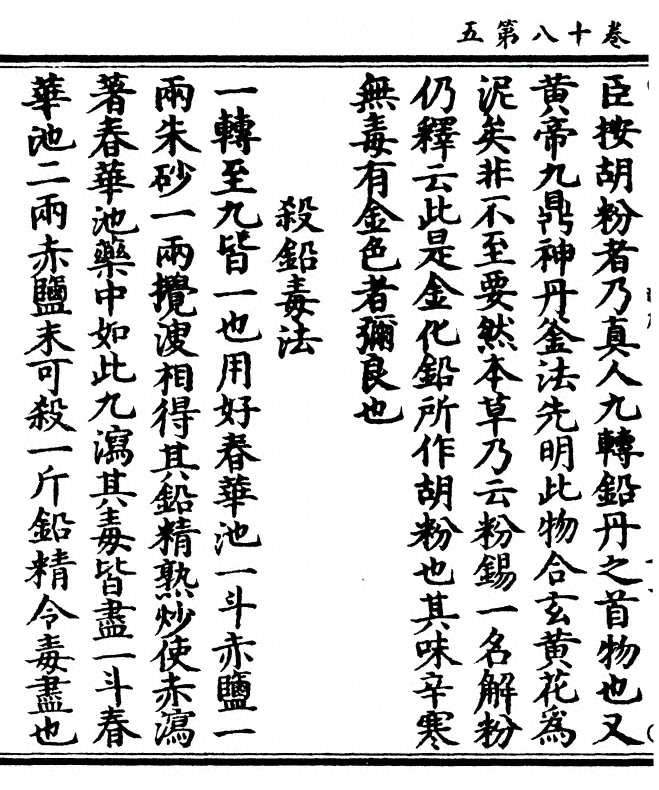 卷十八第五
臣按胡粉者乃真人九轉鉛丹之首物也又
黄帝九鼎神丹釜法先明此物合玄黄花爲
泥矣非不至要然本草乃云粉錫一名解粉
仍釋云此是金化鉛所作胡粉也其味辛寒
無毒有金色者彌良也
殺鉛毒法
一轉至九皆一也用好春華池一斗赤鹽一
兩朱砂一兩攪溲相得其鉛精熟炒使赤瀉
著春華池藥中如此九瀉其毒皆盡一斗春
華池二兩赤鹽末可殺一斤鉛精令毒盡也